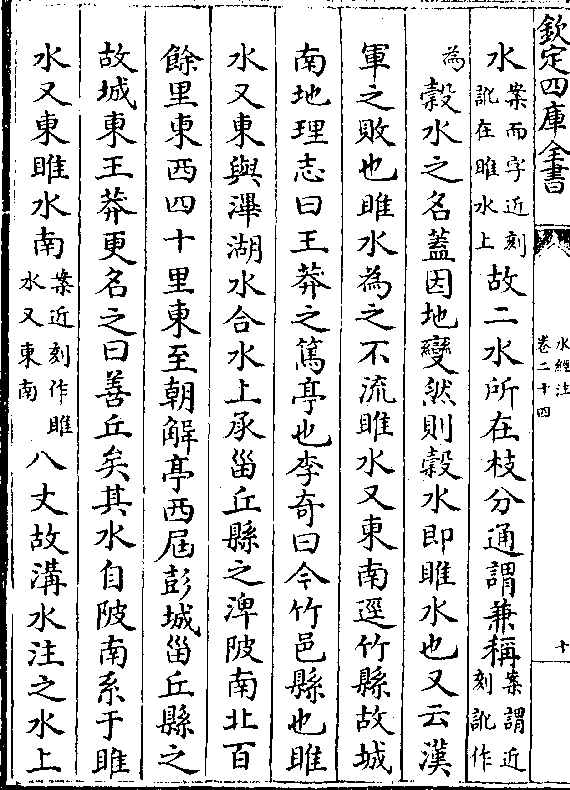 欽定四庫全書
水經注
卷二十四
十
水案而字近刻訛在睢水上故二水所在枝分通謂兼稱案謂近刻訛作
為穀水之名蓋因地變然則穀水即睢水也又云漢
軍之敗也睢水為之不流睢水又東南逕竹縣故城
南地理志曰王莽之篤亭也李奇曰今竹邑縣也睢
水又東與滭湖水合水上承甾丘縣之渒陂南北百
餘里東西四十里東至朝解亭西屆彭城甾丘縣之
故城東王莽更名之曰善丘矣其水自陂南系于睢
水又東睢水南案近刻作睢水又東南八丈故溝水注之水上